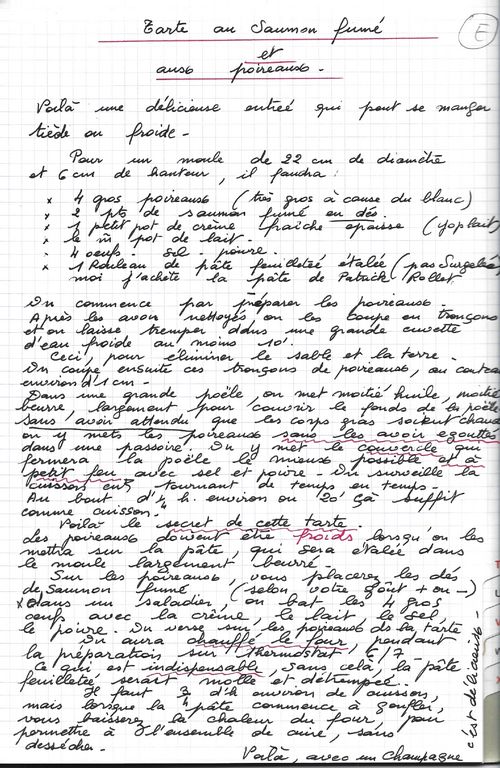 Tarte au Saumon fumé
E
et
aux poireaux -
Voilà une délicieuse entrée qui peut se manger
tiède ou froide -
Pour un moule de 22 cm de diamètre
et 6 cm de hauteur, il faudra :
x 4 gros poireaux (très gros à cause du blanc)
x 2 pts de saumon fumé en dés
x 1 petit pot de crème fraîche épaisse (yoplait)
x le m̄ pot de lait -
x 4 oeufs - Sel - poivre -
x 1 Rouleau de pâte feuilletée étalée (pas Surgelée)
moi j'achète la pâte de Patrick Rollet
On commence par préparer les poireaux -
Après les avoir nettoyés, on les coupe en tronçons
et on laisse tremper dans une grande cuvette
d'eau froide au moins 10'.
Ceci, pour éliminer le sable et la terre -
On coupe ensuite ces tronçons de poireaux, au couteau
environ d'1 cm -
Dans une grande poële, on met moitié huile, moitié
beurre, largement pour couvrir le fonds de la poële
Sans avoir attendu que les corps gras soient chauds
on y mets les poireaux sans les avoir egouttés
dans une passoire. On y met le couvercle qui
fermera la poële le mieux possible et à
petit feu avec sel et poivre - On surveille la
cuisson en tournant de temps en temps -
Au bout d' h. environ ou 20' çà suffit
comme cuisson.
Voilà le secret de cette tarte.
Les poireaux doivent être froids lorsqu'on les
mettra sur la pâte, qui sera étalée dans
le moule largement beurré -
Sur les poireaux, vous placerez les dés
de saumon fumé (selon votre goût + ou -)
x Dans un saladier, on bat les 4 gros
oeufs avec la crème, le lait le sel
le poivre. On verse sur les poireaux de la tarte
On aura chauffé le four, pendant
la préparation sur thermostat 6/7
Ce qui est indispensable sans cela, la pâte
feuilletée serait molle et détrempée.
Il faut d'h environ de cuisson,
mais lorsque la pâte commence à gonfler,
vous baisserez la chaleur du four, pour
permettre à l'ensemble de cuire, sans
dessécher -
Voilà, avec un champagne
c'est délicieux -